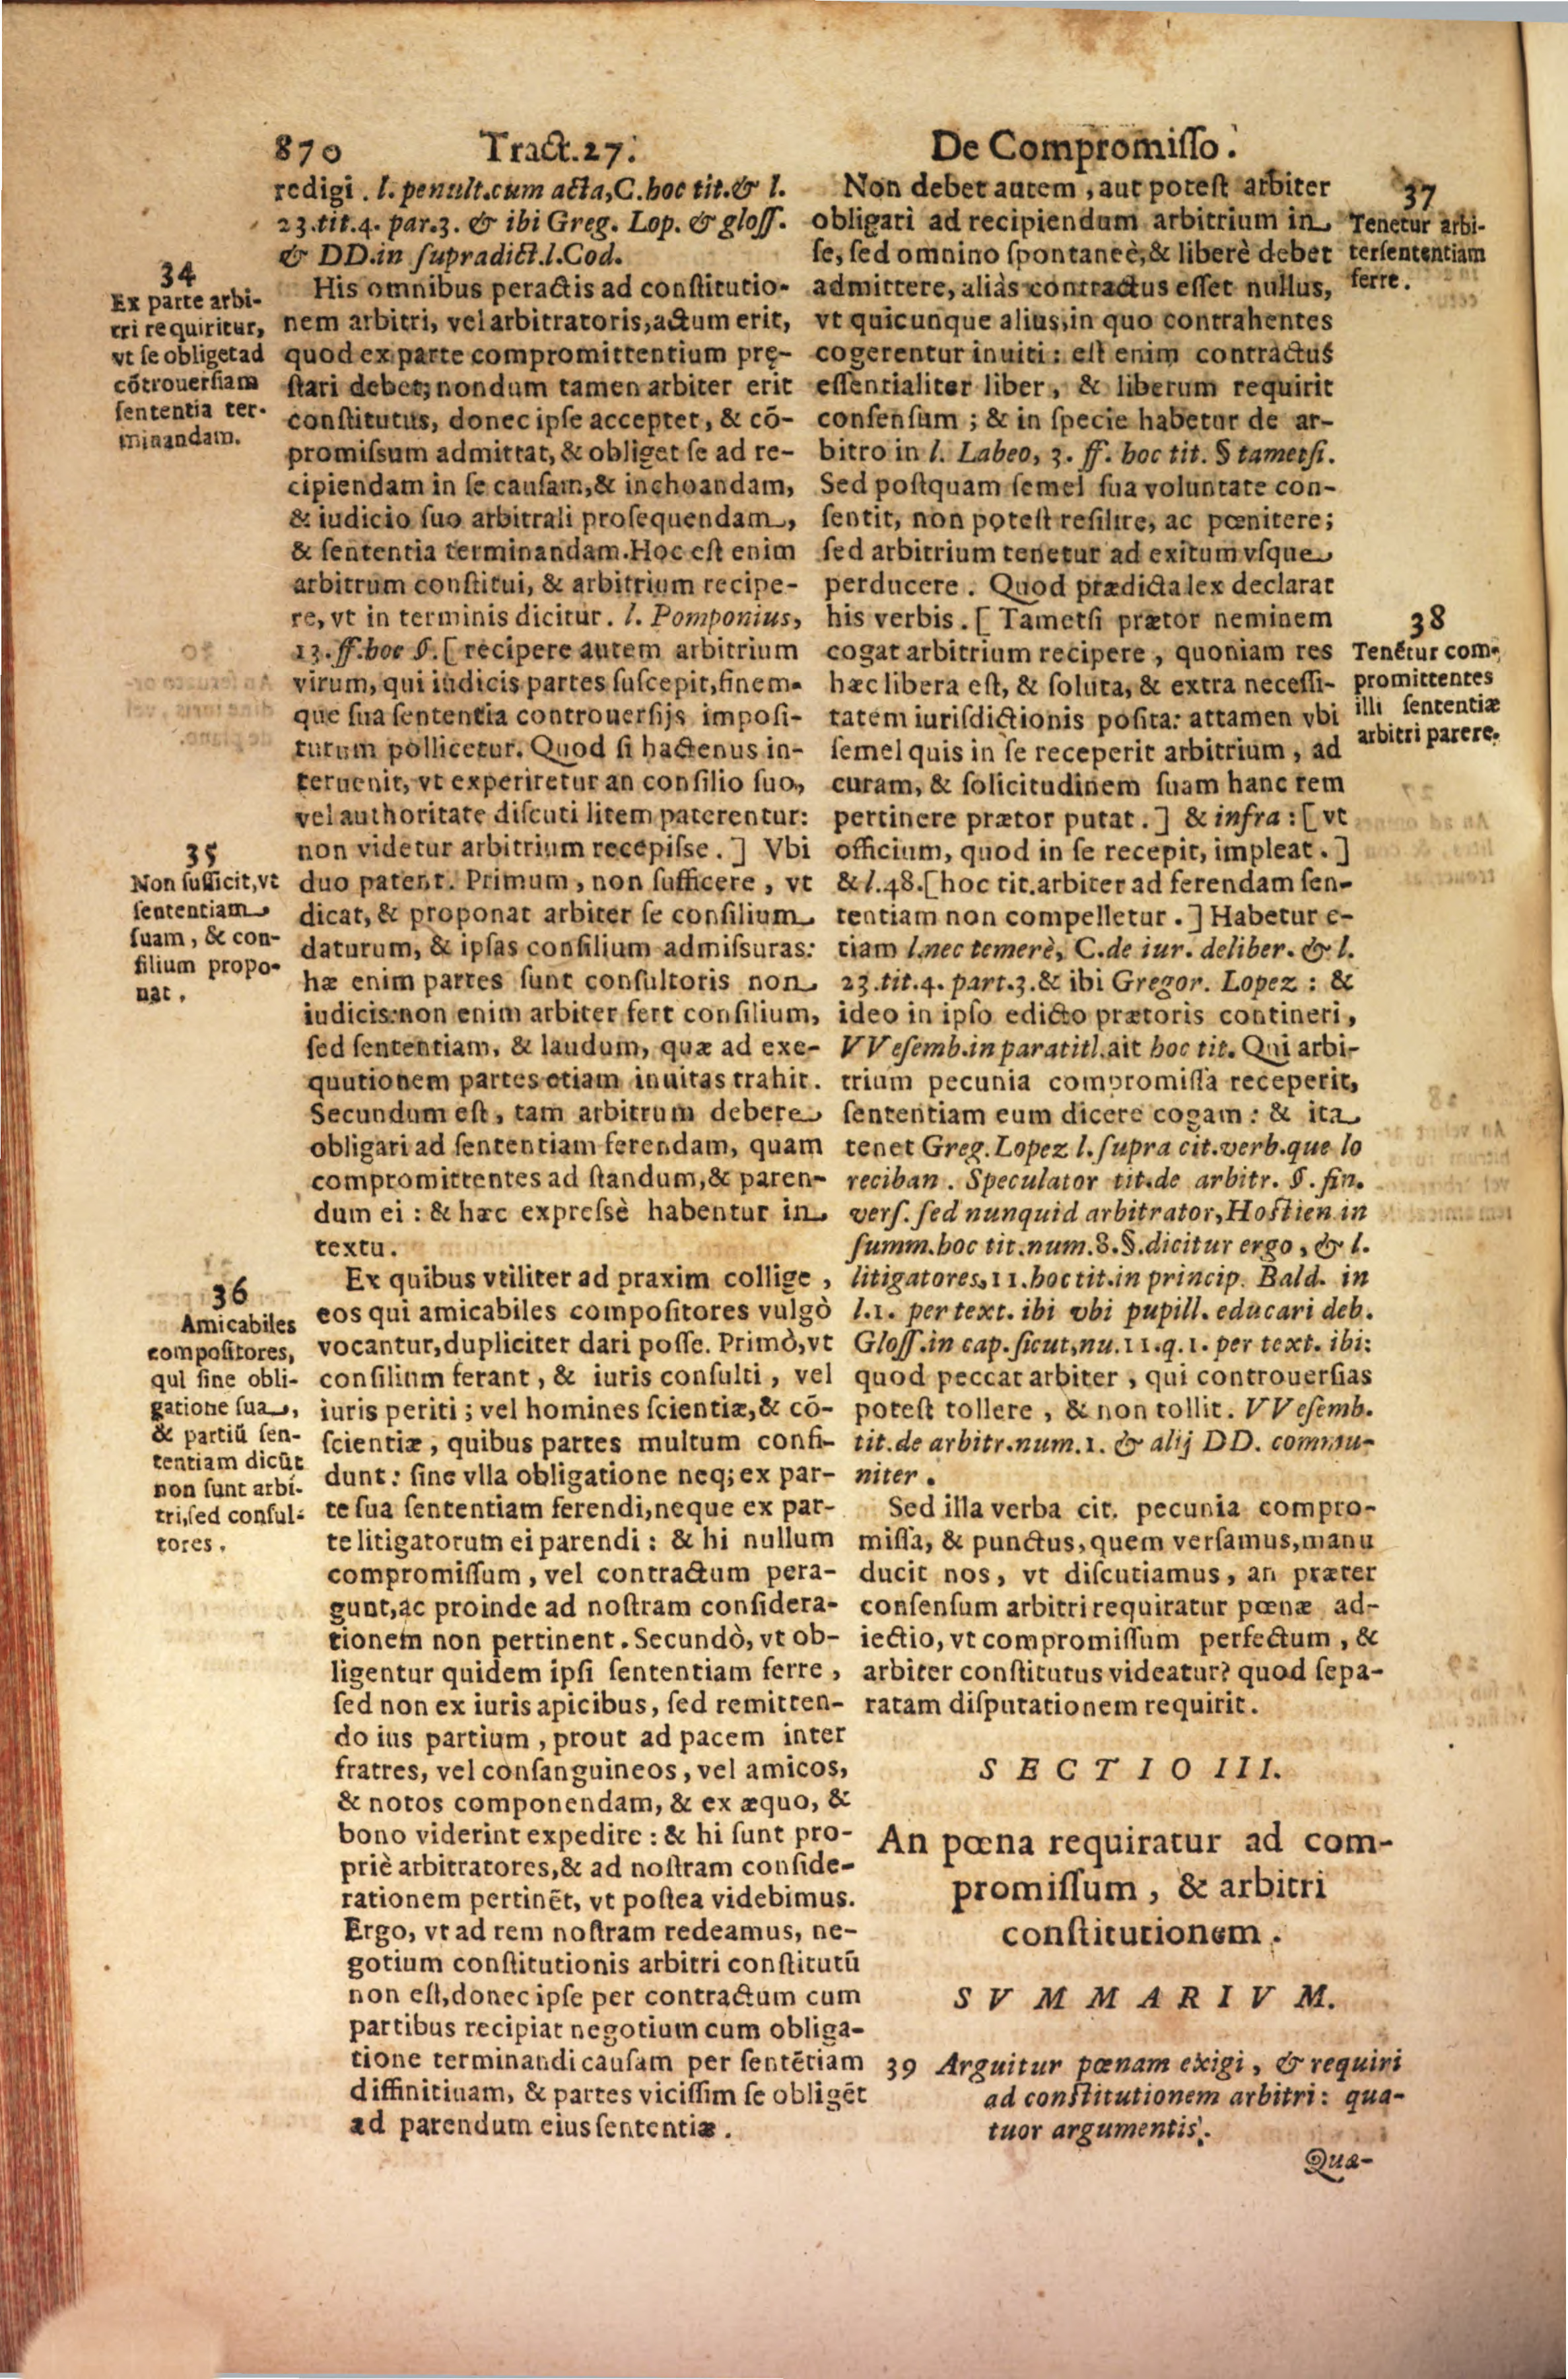 870 Tract.27. De Compromisso.
redigi. l. penult.cum acta,C.hoc tit.& l.
23.tit.4. par.3. & ibi Greg. Lop. & gloss.
& DD.in supradict.l.Cod.
34
Ex parte arbi-
tri requiritur,
vt se obliget ad
cōtrouersiam
sententia ter-
minandam.
His omnibus peractis ad constitutio-
nem arbitri, vel arbitratoris,actum erit,
quod ex parte compromittentium prę-
stari debet; nondum tamen arbiter erit
constitutus, donec ipse acceptet, & cō-
promissum admittat, & obliget se ad re-
cipiendam in se causam,& inchoandam,
& iudicio suo arbitrali prosequendam,
& sententia terminandam.Hoc est enim
arbitrum constitui, & arbitrium recipe-
re, vt in terminis dicitur. l. Pomponius,
13.ff.hoc §.[ recipere autem arbitrium
virum, qui iudicis partes suscepit,finem-
que sua sententia controuersijs imposi-
turum pollicetur. Quod si hactenus in-
teruenit, vt experiretur an consilio suo,
vel authoritate discuti litem paterentur:
non videtur arbitrium recepisse.] Vbi
35
Non sufficit,vt
sententiam
suam, & con-
silium propo-
nat.
duo patent. Primum, non sufficere, vt
dicat, & proponat arbiter se consilium
daturum, & ipsas consilium admissuras:
hæ enim partes sunt consultoris non
iudicis:non enim arbiter fert consilium,
sed sententiam, & laudum, quæ ad exe-
quutionem partes etiam inuitas trahit.
Secundum est, tam arbitrum debere
obligari ad sententiam ferendam, quam
compromittentes ad standum,& paren-
dum ei : & hæc expressè habentur in
textu.
36
Amicabiles
compositores,
qui sine obli-
gatione sua,
& partiū sen-
tentiam dicūt
non sunt arbi-
tri,sed consul-
tores.
Ex quibus vtiliter ad praxim collige,
eos qui amicabiles compositores vulgò
vocantur,dupliciter dari posse. Primò,vt
consilium ferant, & iuris consulti, vel
iuris periti; vel homines scientiæ,& cō-
scientiæ, quibus partes multum confi-
dunt: sine vlla obligatione neq; ex par-
te sua sententiam ferendi,neque ex par-
te litigatorum ei parendi : & hi nullum
compromissum, vel contractum pera-
gunt,ac proinde ad nostram considera-
tionem non pertinent. Secundò, vt ob-
ligentur quidem ipsi sententiam ferre,
sed non ex iuris apicibus, sed remitten-
do ius partium, prout ad pacem inter
fratres, vel consanguineos, vel amicos,
& notos componendam, & ex æquo, &
bono viderint expedire : & hi sunt pro-
priè arbitratores,& ad nostram conside-
rationem pertinēt, vt postea videbimus.
Ergo, vt ad rem nostram redeamus, ne-
gotium constitutionis arbitri constitutū
non est,donec ipse per contractum cum
partibus recipiat negotium cum obliga-
tione terminandi causam per sentētiam
diffinitiuam, & partes vicissim se obligēt
ad parendum eius sententiæ.
37
Tenetur arbi-
ter sententiam
ferre.
Non debet autem, aut potest arbiter
obligari ad recipiendum arbitrium in
se, sed omnino spontaneè,& liberè debet
admittere, aliàs contractus esset nullus,
vt quicunque alius,in quo contrahentes
cogerentur inuiti: est enim contractus
essentialiter liber, & liberum requirit
consensum ; & in specie habetur de ar-
bitro in l. Labeo, 3. ff. hoc tit. § tametsi.
Sed postquam semel sua voluntate con-
sentit, non potest resilire, ac pœnitere;
sed arbitrium tenetur ad exitum vsque
perducere. Quod prædicta lex declarat
38
Tenētur com-
promittentes
illi sententiæ
arbitri parere.
his verbis. [ Tametsi prætor neminem
cogat arbitrium recipere, quoniam res
hæc libera est, & soluta, & extra necessi-
tatem iurisdictionis posita: attamen vbi
semel quis in se receperit arbitrium, ad
curam, & solicitudinem suam hanc rem
pertinere prætor putat.] & infra : [ vt
officium, quod in se recepit, impleat.]
& l.48.[hoc tit.arbiter ad ferendam sen-
tentiam non compelletur.] Habetur e-
tiam l.nec temerè, C.de iur. deliber. & l.
23.tit.4. part.3.& ibi Gregor. Lopez : &
ideo in ipso edicto prætoris contineri,
VVesemb.in paratitl.ait hoc tit. Qui arbi-
trium pecunia compromissa receperit,
sententiam eum dicere cogam : & ita
tenet Greg. Lopez l.supra cit.verb.que lo
reciban. Speculator tit.de arbitr. §.fin.
vers.sed nunquid arbitrator,Hostien in
summ.hoc tit.num.8.§.dicitur ergo, & l.
litigatores,11.hoc tit.in princip. Bald. in
l.1. per text. ibi vbi pupill. educari deb.
Gloss.in cap.sicut,nu.11.q.1. per text. ibi:
quod peccat arbiter, qui controuersias
potest tollere, & non tollit. VVesemb.
tit.de arbitr.num.1. & alij DD. commu-
niter.
Sed illa verba cit. pecunia compro-
missa, & punctus,quem versamus,manu
ducit nos, vt discutiamus, an præter
consensum arbitri requiratur pœnæ ad-
iectio, vt compromissum perfectum, &
arbiter constitutus videatur? quod sepa-
ratam disputationem requirit.
SECTIO III.
An pœna requiratur ad com-
promissum, & arbitri
constitutionem.
SVMMARIVM.
39 Arguitur pœnam exigi, & requiri
ad constitutionem arbitri: qua-
tuor argumentis.
Qua-